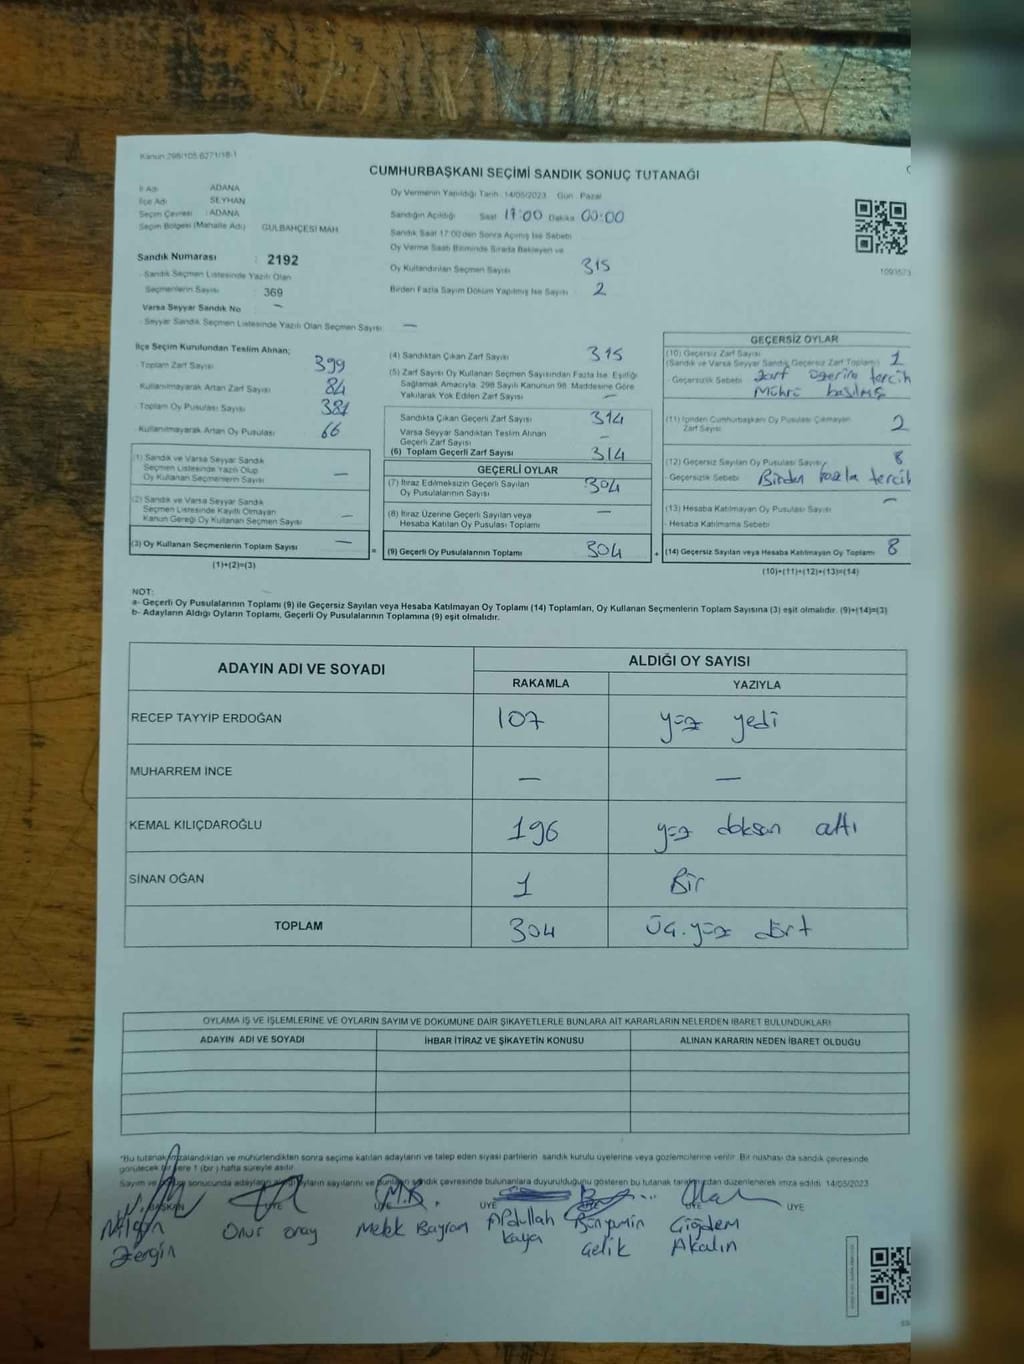 Kanun 298/105 6271/18-1
CUMHURBAŞKANI SEÇİMİ SANDIK SONUÇ TUTANAĞI
İl Adı ADANA
İlçe Adı SEYHAN
Seçim Çevresi : ADANA
Seçim Bölgesi (Mahalle Adı) GÜLBAHÇESİ MAH
Sandık Numarası : 2192
Sandık Seçmen Listesinde Yazılı Olan
Seçmenlerin Sayısı 369
Varsa Seyyar Sandık No —
Seyyar Sandık Seçmen Listesinde Yazılı Olan Seçmen Sayısı —
Oy Vermenin Yapıldığı Tarih : 14/05/2023 Gün : Pazar
Sandığın Açıldığı Saat 17:00 Dakika 00:00
Sandık Saat 17:00'den Sonra Açılmış İse Sebebi
Oy Verme Saati Bitiminde Sırada Bekleyen ve
Oy Kullandırılan Seçmen Sayısı 315
Birden Fazla Sayım Döküm Yapılmış İse Sayısı 2
İlçe Seçim Kurulundan Teslim Alınan;
Toplam Zarf Sayısı 399
Kullanılmayarak Artan Zarf Sayısı 84
Toplam Oy Pusulası Sayısı 381
Kullanılmayarak Artan Oy Pusulası 66
(1) Sandık ve Varsa Seyyar Sandık
Seçmen Listesinde Yazılı Olup
Oy Kullanan Seçmenlerin Sayısı —
(2) Sandık ve Varsa Seyyar Sandık
Seçmen Listesinde Kayıtlı Olmayan
Kanun Gereği Oy Kullanan Seçmen Sayısı —
(3) Oy Kullanan Seçmenlerin Toplam Sayısı —
(1)+(2)=(3)
(4) Sandıktan Çıkan Zarf Sayısı 315
(5) Zarf Sayısı Oy Kullanan Seçmen Sayısından Fazla İse, Eşitliği
Sağlamak Amacıyla, 298 Sayılı Kanunun 98. Maddesine Göre
Yakılarak Yok Edilen Zarf Sayısı —
Sandıkta Çıkan Geçerli Zarf Sayısı 314
Varsa Seyyar Sandıktan Teslim Alınan
Geçerli Zarf Sayısı —
(6) Toplam Geçerli Zarf Sayısı 314
GEÇERLİ OYLAR
(7) İtiraz Edilmeksizin Geçerli Sayılan
Oy Pusulalarının Sayısı 304
(8) İtiraz Üzerine Geçerli Sayılan veya
Hesaba Katılan Oy Pusulası Toplamı —
= (9) Geçerli Oy Pusulalarının Toplamı 304
GEÇERSİZ OYLAR
(10) Geçersiz Zarf Sayısı
(Sandık ve Varsa Seyyar Sandık Geçersiz Zarf Toplamı) 1
Geçersizlik Sebebi zarf üzerine tercih
mührü basılmış
(11) İçinden Cumhurbaşkanı Oy Pusulası Çıkmayan
Zarf Sayısı 2
(12) Geçersiz Sayılan Oy Pusulası Sayısı 8
Geçersizlik Sebebi Birden fazla tercih
(13) Hesaba Katılmayan Oy Pusulası Sayısı —
Hesaba Katılmama Sebebi
+ (14) Geçersiz Sayılan veya Hesaba Katılmayan Oy Toplamı 8
(10)+(11)+(12)+(13)=(14)
NOT:
a- Geçerli Oy Pusulalarının Toplamı (9) ile Geçersiz Sayılan veya Hesaba Katılmayan Oy Toplamı (14) Toplamları, Oy Kullanan Seçmenlerin Toplam Sayısına (3) eşit olmalıdır. (9)+(14)=(3)
b- Adayların Aldığı Oyların Toplamı, Geçerli Oy Pusulalarının Toplamına (9) eşit olmalıdır.
ADAYIN ADI VE SOYADI ALDIĞI OY SAYISI
RAKAMLA YAZIYLA
RECEP TAYYİP ERDOĞAN 107 yüz yedi
MUHARREM İNCE — —
KEMAL KILIÇDAROĞLU 196 yüz doksan altı
SİNAN OĞAN 1 Bir
TOPLAM 304 üç.yüz dört
OYLAMA İŞ VE İŞLEMLERİNE VE OYLARIN SAYIM VE DÖKÜMÜNE DAİR ŞİKAYETLERLE BUNLARA AİT KARARLARIN NELERDEN İBARET BULUNDUKLARI
ADAYIN ADI VE SOYADI İHBAR İTİRAZ VE ŞİKAYETİN KONUSU ALINAN KARARIN NEDEN İBARET OLDUĞU
*Bu tutanak imzalandıktan ve mühürlendikten sonra seçime katılan adayların ve talep eden siyasi partilerin sandık kurulu üyelerine veya gözlemcilerine verilir. Bir nüshası da sandık çevresinde
görülecek bir yere 1 (bir) hafta süreyle asılır.
BAŞKAN ÜYE ÜYE ÜYE ÜYE
Nilgün Zergin
Onur onay
Melek Bayram
Abdullah Kaya
Bünyamin Çelik
Çiğdem Akalın